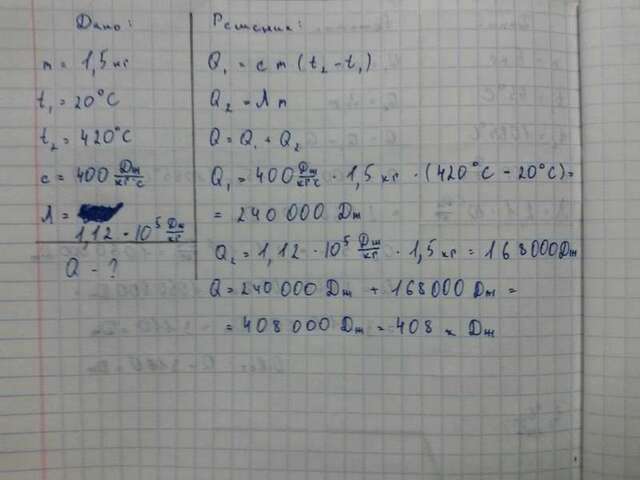 Дано:
m = 1,5 кг
t₁ = 20°C
t₂ = 420°C
c = 400 Дж/кг°C
λ =
1,12 · 10⁵ Дж/кг
Q - ?
Решение:
Q₁ = cm (t₂ - t₁)
Q₂ = λm
Q = Q₁ + Q₂
Q₁ = 400 Дж/кг°C · 1,5 кг · (420°C - 20°C) =
= 240 000 Дж
Q₂ = 1,12 · 10⁵ Дж/кг · 1,5 кг = 168000 Дж
Q = 240 000 Дж + 168000 Дж =
= 408 000 Дж = 408 к Дж